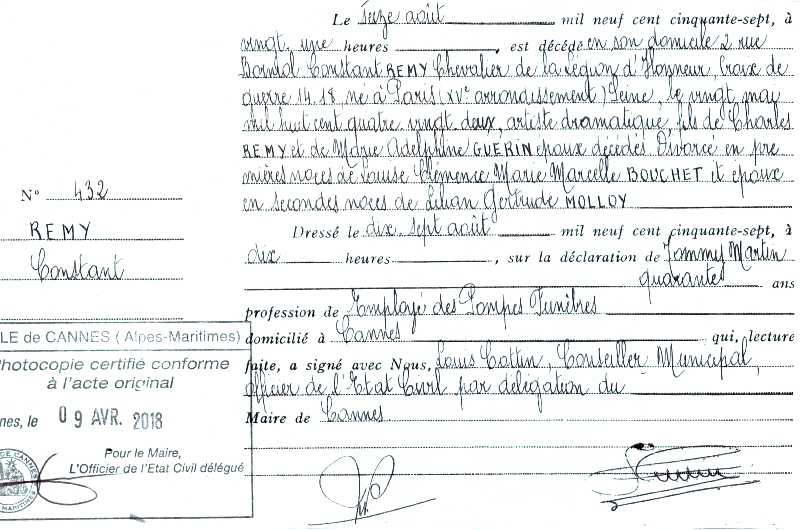 Le seize août mil neuf cent cinquante-sept, à
vingt une heures, est décédé en son domicile 2 rue
Constant REMY Chevalier de la Légion d'Honneur, Croix de
guerre 14.18, né à Paris (XVe arrondissement) Seine, le vingt mai
mil huit cent quatre vingt deux, artiste dramatique, fils de Charles
REMY et de Marie Adelphine GUERIN époux décédés Divorcé en pre
mières noces de Louise Clémence Marie Marcelle BOUCHET et époux
en secondes noces de Lilian Gertrude MOLLOY
Dressé le dix sept août mil neuf cent cinquante-sept, à
dix heures, sur la déclaration de Tommy Martin
quarante ans
profession de Employé des Pompes Funèbres
domicilié à Cannes qui, lecture
faite, a signé avec Nous, Louis Cottin, Conseiller Municipal,
officier de l'Etat Civil par délégation du
Maire de Cannes
N° 432
REMY
Constant
LE de CANNES (Alpes-Maritimes)
hotocopie certifié conforme
à l'acte original
nes, le 09 AVR. 2018
Pour le Maire,
L'Officier de l'Etat Civil délégué